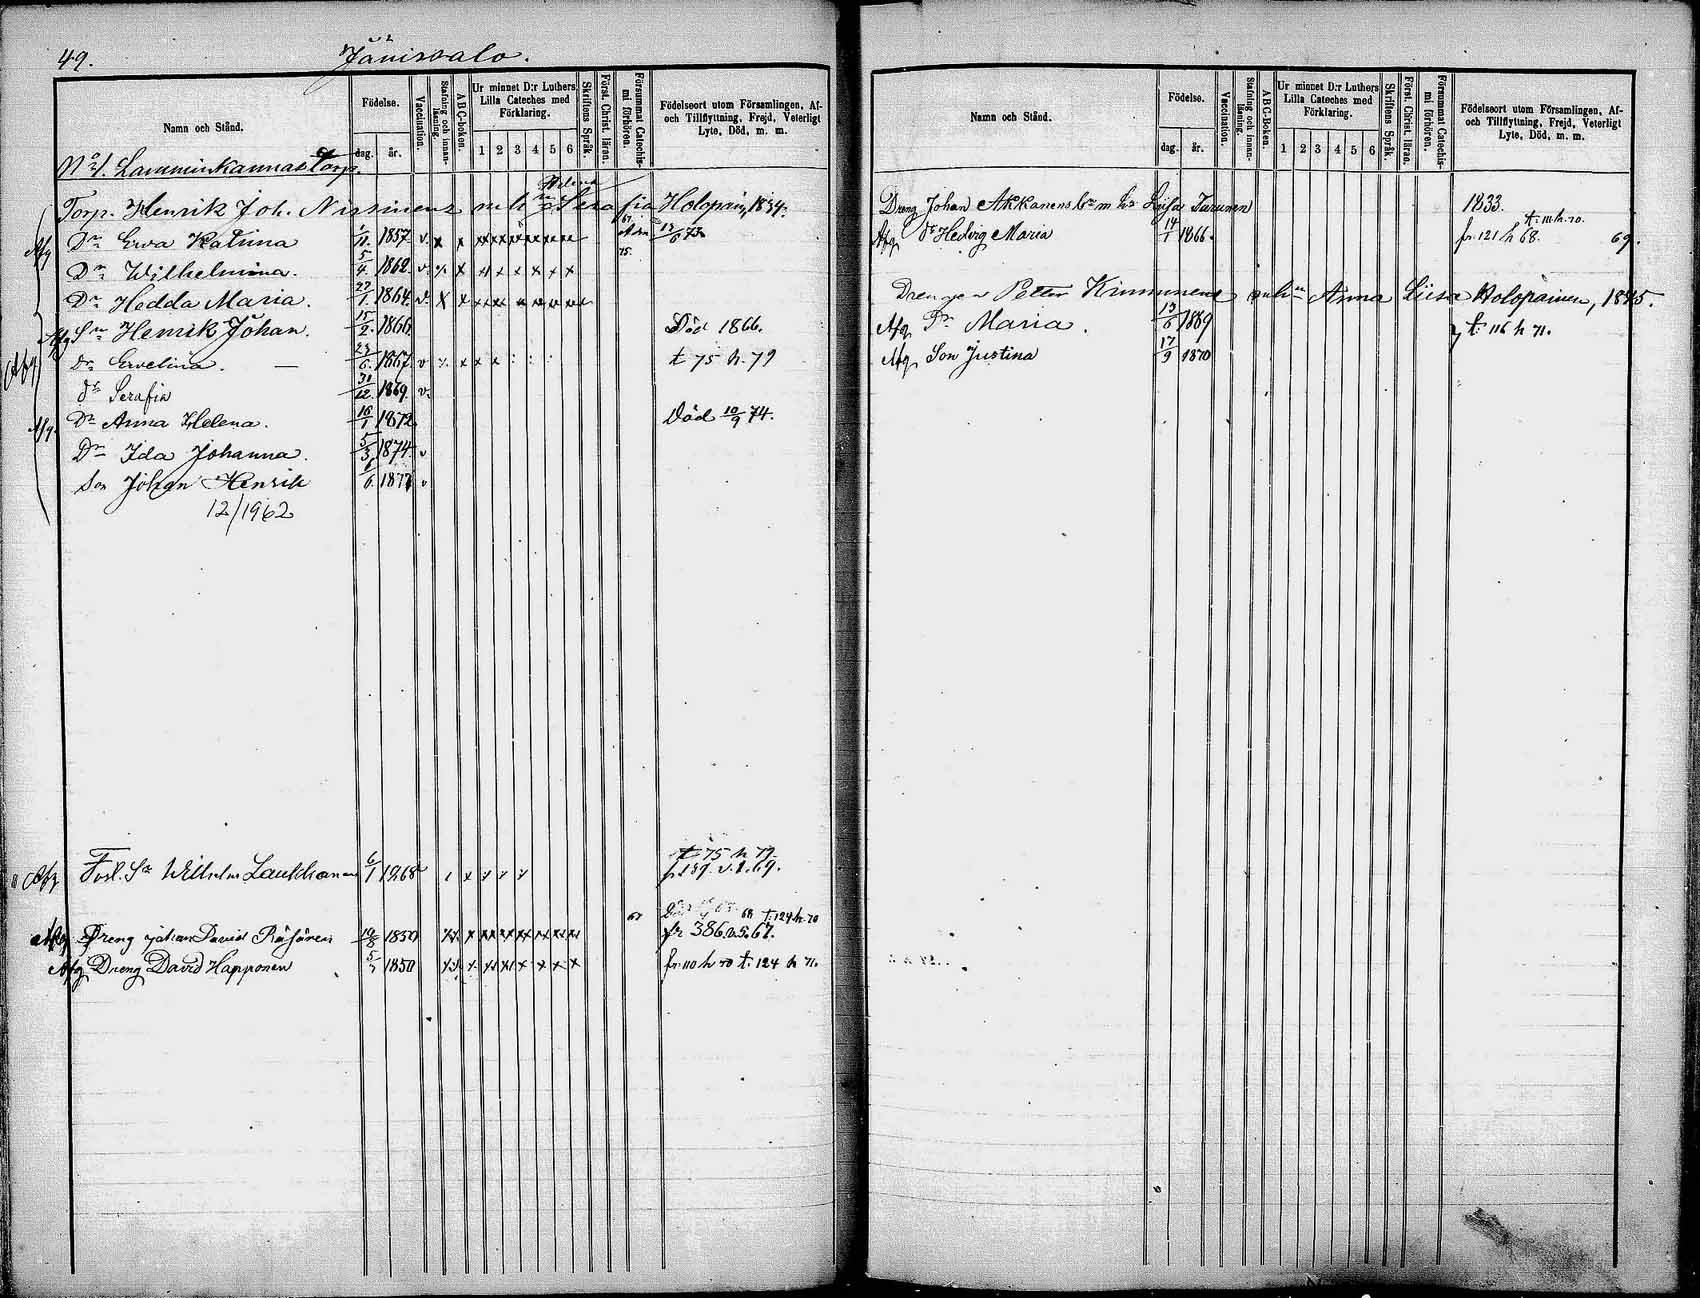 49. Jänissalo.
Namn och Stånd. Födelse. dag. år. Vaccination. Stafning och innanläsning. A B C-boken. Ur minnet D:r Luthers Lilla Cateches med Förklaring. 1 2 3 4 5 6 Skriftens Språk. Först. Christ. läran. Försummat Catechismi förhören. Födelseort utom Församlingen, Af- och Tillflyttning, Frejd, Veterligt Lyte, Död, m. m.
No 1. Lamminkannas Torp.
Helena
Torp. Henrik Joh. Nissinens Serafia Holopain, 1834.
Dr Eva Katrina 1/11. 1857. v. x x 12/6 73.
Dr Wilhelmina. 5/4. 1862. v. 75.
Dr Hedda Maria. 27/1. 1864. v.
Afg Sn Henrik Johan. 15/2. 1866. Död 1866.
Dr Evelina. 23/6. 1867. v t 75 h 79
dr Serafia 31/12. 1869. v.
Afg. Dr Anna Helena. 16/1 1872 Död 10/9 74.
Dr Ida Johanna. 5/3 1874. v
Son Johan Henrik 6/6. 187 v
12/1962
t 75 h 79.
Afg Fosl. Sn Wilhelm Laukkanen 6/1 1868 fr 139. 69.
68 t. 124 h. 70
Afg Dreng Johan David Räsänen 19/8 1850 fr 386. 67.
Afg Dreng David Happonen 5/7 1850 fr. 110 h 70 t. 124 h 71.
Namn och Stånd. Födelse. dag. år. Vaccination. Stafning och innanläsning. A B C-Boken. Ur minnet D:r Luthers Lilla Cateches med Förklaring. 1 2 3 4 5 6 Skriftens Språk. Först. Christ. läran. Försummat Catechismi förhören. Födelseort utom Församlingen, Af- och Tillflyttning, Frejd, Veterligt Lyte, Död, m. m.
Dreng Johan Akkanens m. h. Lisa Tarunen 1833.
t. 111 h. 70.
Afg dr Hedvig Maria 14/1 1866. fr. 121 h 68. 69.
Drengen Petter Kinnunens Anna Liisa Holopainen, 1845.
Afg Dr Maria. 13/6 1869 t. 116 h 71.
Afg Son Justina 17/9 1870